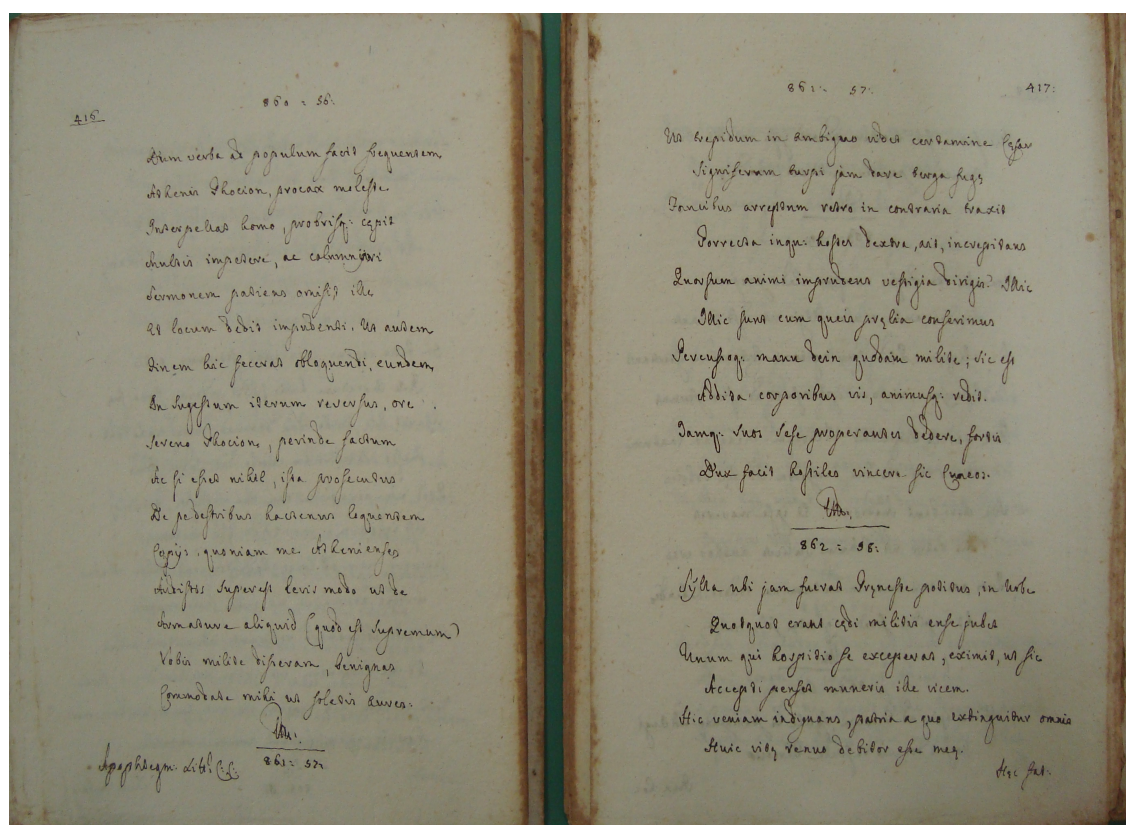 416
860 : 56:
Dum verba ad populum facit frequentem
Athenis Phocion, procax moleste
Interpellat homo, probrisq: cępit
Multis impetere, ac calumniari
Sermonem patiens omisit ille
Et locum dedit impudenti. Ut autem
Finem hic fecerat obloquendi, eundem
In sugestum iterum reversus, ore
Sereno Phocion, perinde factum
Ac si esset nihil, ista prosecutus
De pedestribus hactenus loquentem
Copijs: quoniam me Athenienses
Audistis superest levis modo ut de
Armature aliquid (quod est supremum)
Vobis milite disseram, benignas
Commodate mihi ut soletis aures:
Apophtegm: Lib:
861: 57:
861: 57: 417:
Ut trepidum in ambiguo videt certamine Cęsar
Signiferum turpi jam dare terga fugę
Faucibus arreptum retro in contraria traxit
Porrecta inqu: hostes dextra, ait, increpitans
Quorsum animi imprudens vestigia dirigis? Illic
Illic sunt cum queis pręlia conserimus
Percussoq: manu dein quodam milite; sic est
Addita corporibus vis, animusq: redit.
Jamq: suos sese properantes dedere, fortis
Dux facit hostiles vincere sic cuneos:
862 : 58:
Sylla ubi jam fuerat Pręneste potitus, in Urbe
Quotquot erant cędi militis ense jubet
Unum qui hospitio se exceperat, eximit, ut sic
Accepti penset muneris ille vicem.
Hic veniam indignans, patria a quo extinguitur omnis
Huic vitę renuo debitor esse meę.
Hęc fat: